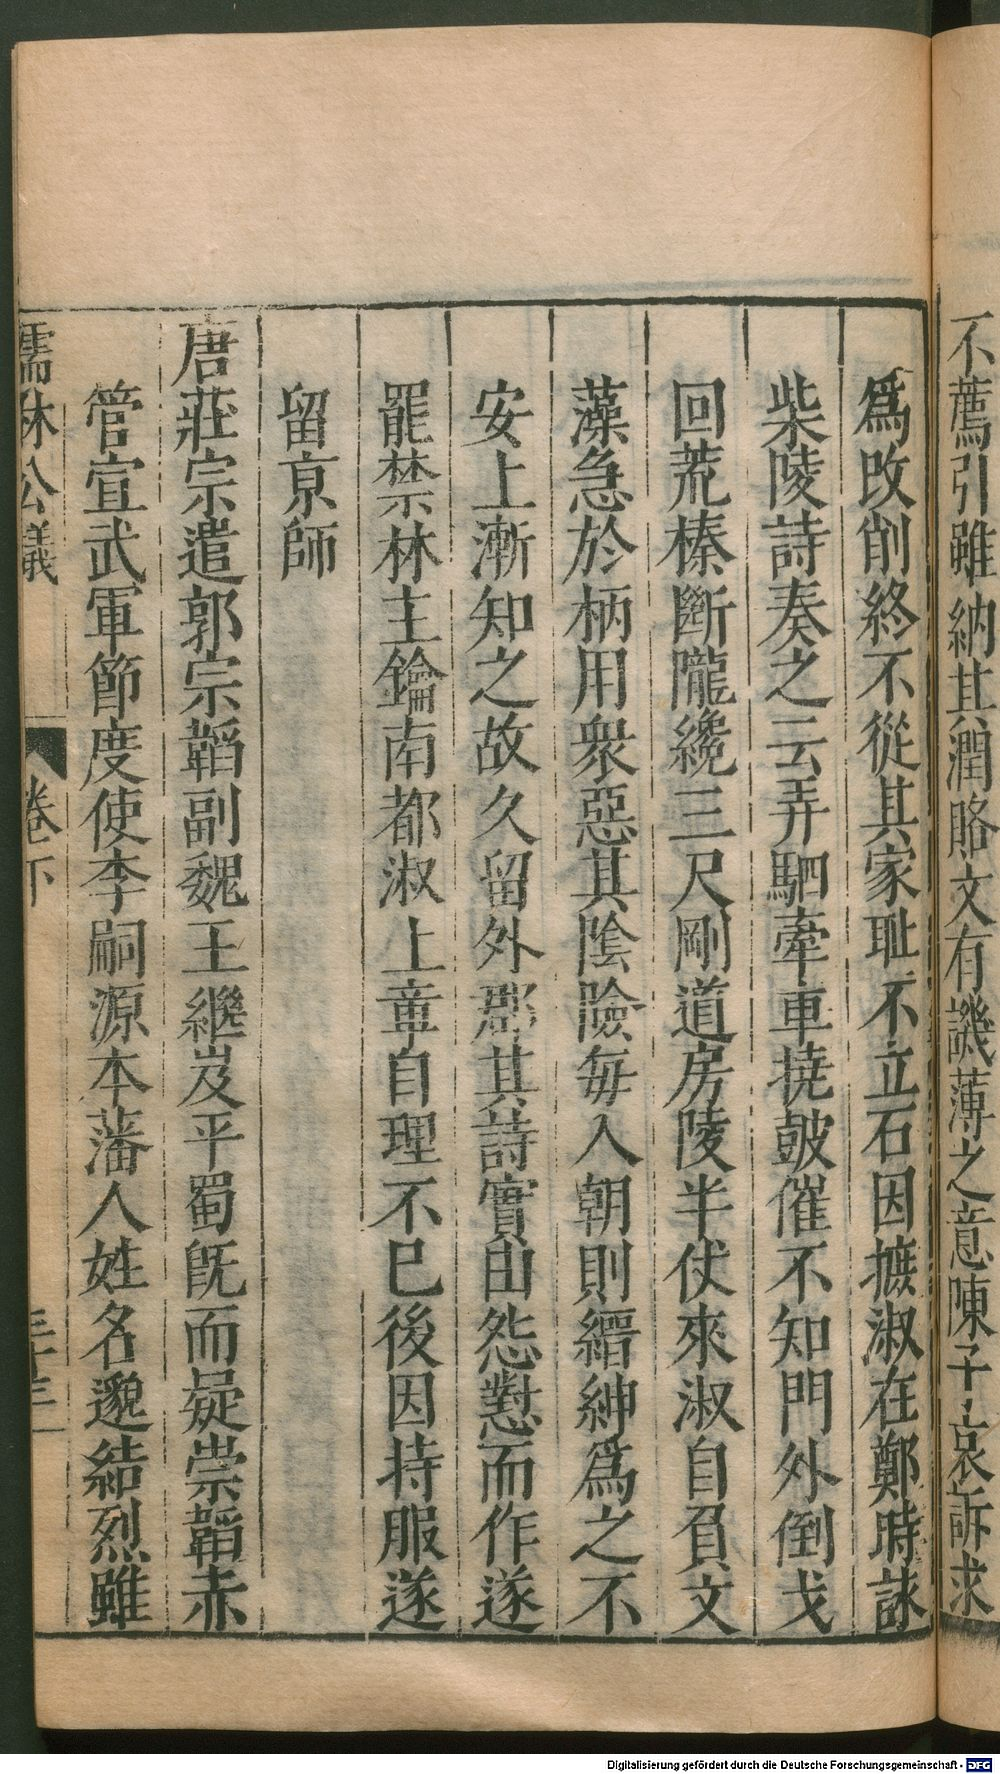 不薦引雖納其潤賂文有譏薄之意陳子哀訴求
爲改削終不從其家耻不立石因摭淑在鄭時詠
柴陵詩奏之云弄駟牽車撓皷催不知門外倒戈
回荒榛斷隴纔三尺剛道房陵半仗來淑自負文
藻急於柄用衆惡其陰險每入朝則縉紳爲之不
安上漸知之故久留外郡其詩實由怨懟而作遂
罷禁林主鑰南都淑上章自理不已後因持服遂
留京師
唐莊宗遣郭宗韜副魏王繼岌平蜀旣而疑崇韜赤
管宣武軍節度使李嗣源本蕃人姓名邈結烈雖
儒林公議
卷下
三十三
Digitalisierung gefördert durch die Deutsche Forschungsgemeinschaft - DFG